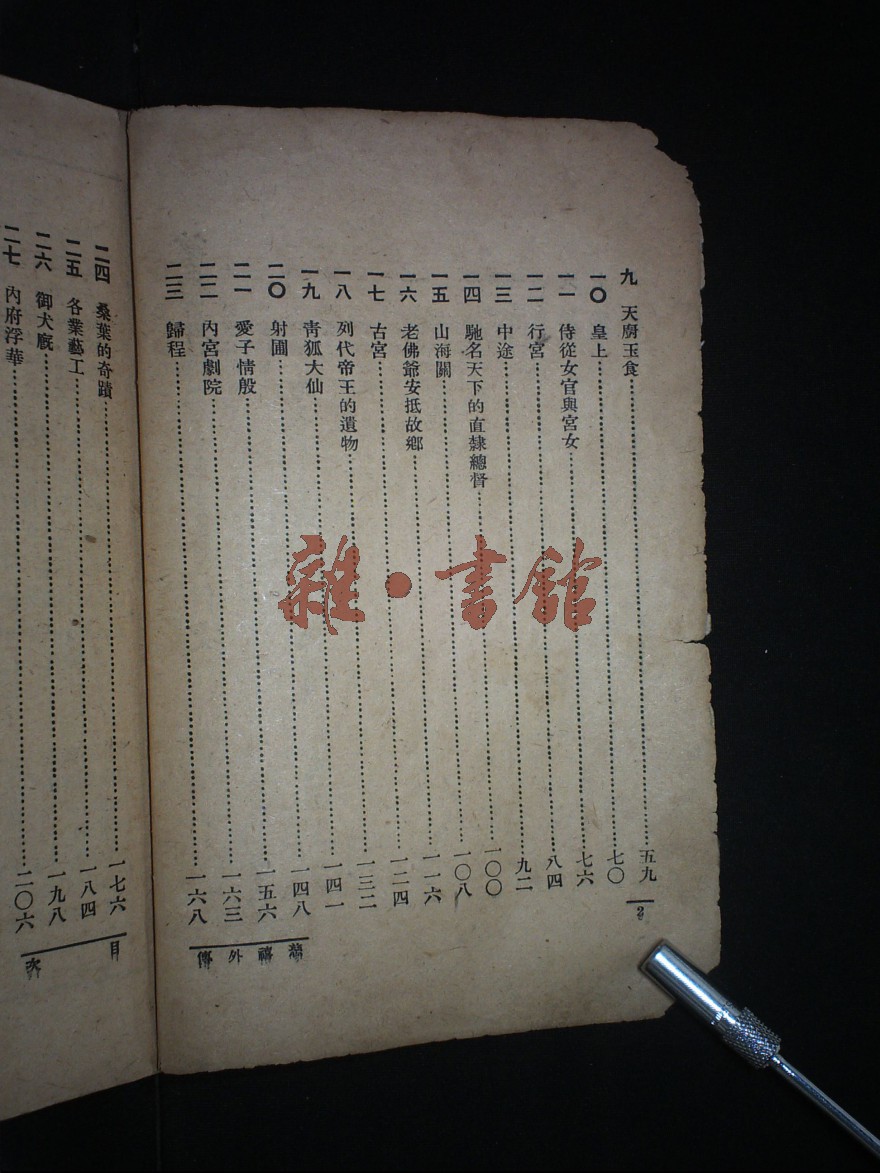 九 天廚玉食……五九
一〇 皇上……七〇
一一 侍從女官與宮女……七六
一二 行宮……八四
一三 中途……九二
一四 馳名天下的直隸總督……一〇〇
一五 山海關……一〇八
一六 老佛爺安抵故鄉……一一六
一七 古宮……一二四
一八 列代帝王的遺物……一三二
一九 青狐大仙……一四一
二〇 射圃……一四八
二一 愛子情殷……一五六
二二 內宮劇院……一六三
二三 歸程……一六八
2
慈禧外傳
二四 桑葉的奇蹟……一七六
二五 各業藝工……一八四
二六 御犬廄……一九八
二七 內府浮華……二〇六
目次
雜·書館